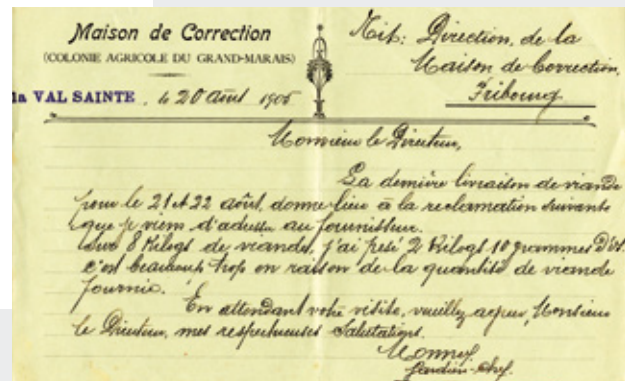 Maison de Correction
(COLONIE AGRICOLE DU GRAND-MARAIS)
la VAL SAINTE, le 20 Août 1906
Tit: Direction, de la
Maison de Correction,
Fribourg
Monsieur le Directeur,
La dernière livraison de viande
pour le 21 et 22 août, donne lieu à la reclamation suivante
que je viens d'adresser au fournisseur.
Sur 8 Kilogs de viande, j'ai pesé 2 Kilogs 10 grammes D'os.
c'est beaucoup trop en raison de la quantité de viande
fournie.
En attendant votre visite, veuillez agréer, Monsieur
le Directeur, mes respectueuses salutations.
Gardien-chef.